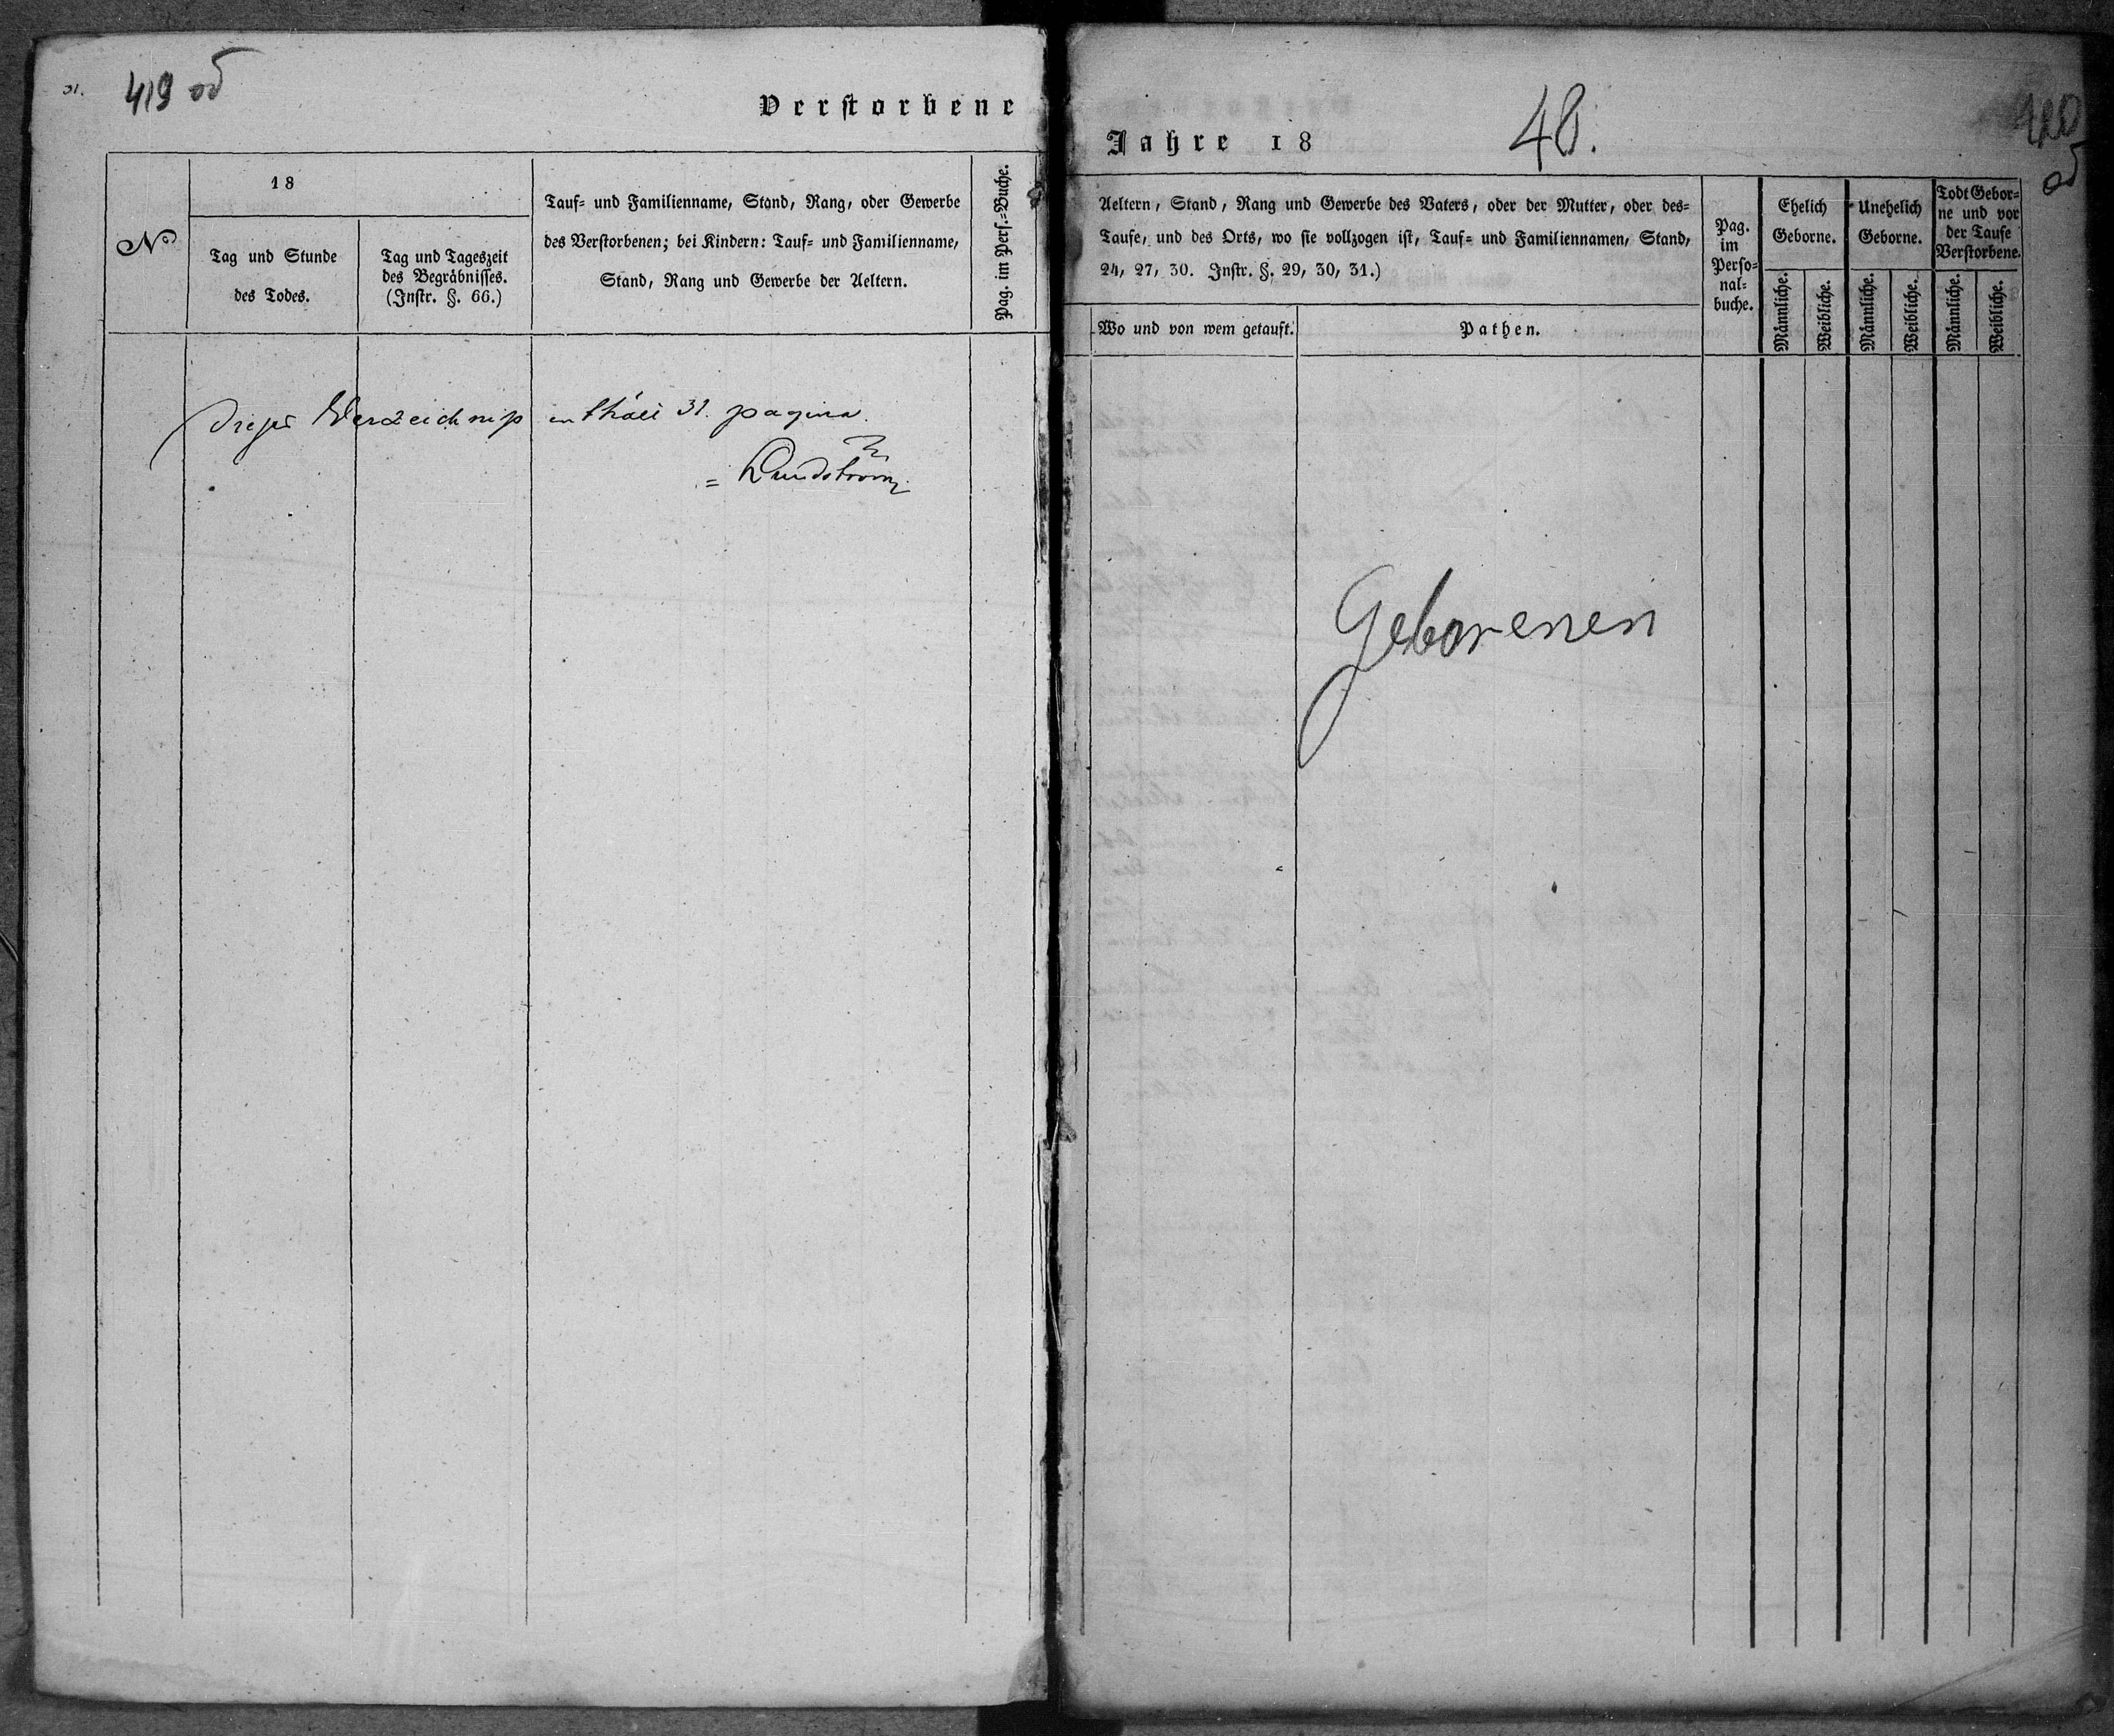 31.
419 od
Verstorbene
No
18
Tag und Stunde
des Todes.
Tag und Tageszeit
des Begräbnisses.
(Instr. §. 66.)
Tauf= und Familienname, Stand, Rang, oder Gewerbe
des Verstorbenen; bei Kindern: Tauf= und Familienname,
Stand, Rang und Gewerbe der Aeltern.
Pag. im Pers.=Buche.
Dieses Verzeichniß enthält 31. pagina.
= Lundström
Jahre 18 48.
420
od
Aeltern, Stand, Rang und Gewerbe des Vaters, oder der Mutter, oder des=
Taufe, und des Orts, wo sie vollzogen ist, Tauf= und Familiennamen, Stand,
24, 27, 30. Instr. §. 29, 30, 31.)
Wo und von wem getauft.
Pathen.
Pag.
im
Perso=
nal=
buche.
Ehelich
Geborne.
Männliche.
Weibliche.
Unehelich
Geborne.
Männliche.
Weibliche.
Todt Gebor=
ne und vor
der Taufe
Verstorbene.
Männliche.
Weibliche.
Geborenen